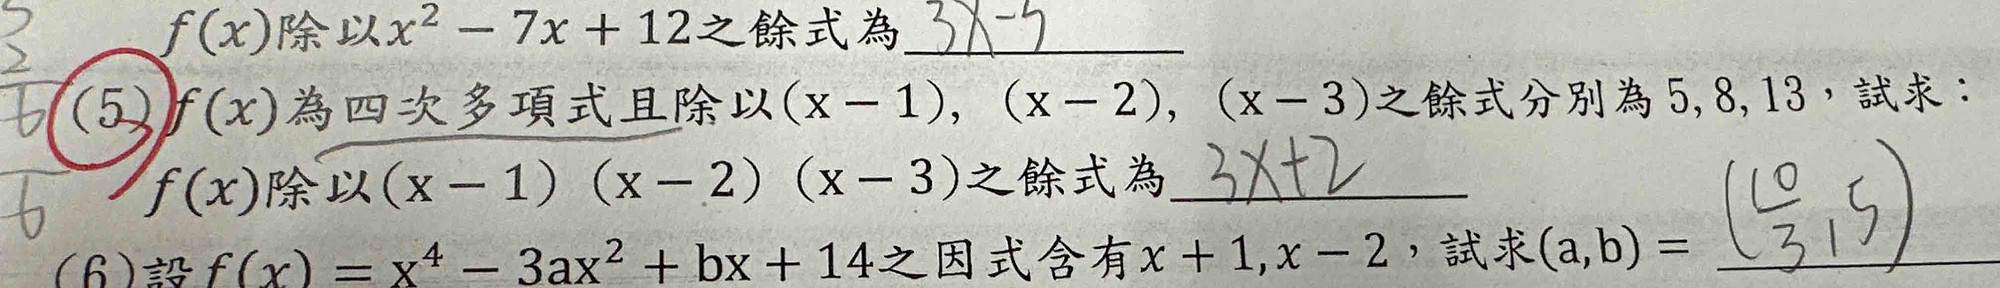 f(x)除以x² − 7x + 12之餘式為 3x-5
(5) f(x)為四次多項式且除以(x − 1), (x − 2), (x − 3)之餘式分別為 5, 8, 13，試求：
f(x)除以(x − 1) (x − 2) (x − 3)之餘式為 3x+2
(6)設 f(x) = x⁴ − 3ax² + bx + 14之因式含有x + 1, x − 2，試求(a, b) = (10/3, 5)